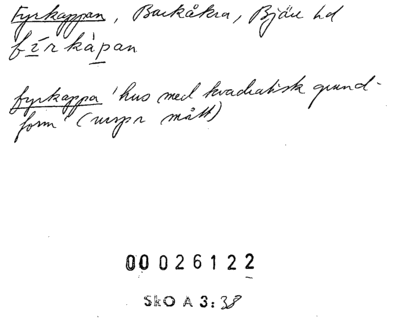 Fyrkappan, Barkåkra, Bjäre hd
fi̱rkàp̱an
fyrkappa 'hus med kvadratisk grund-
form' (urspr mått)
00 026122
SkO A 3:38